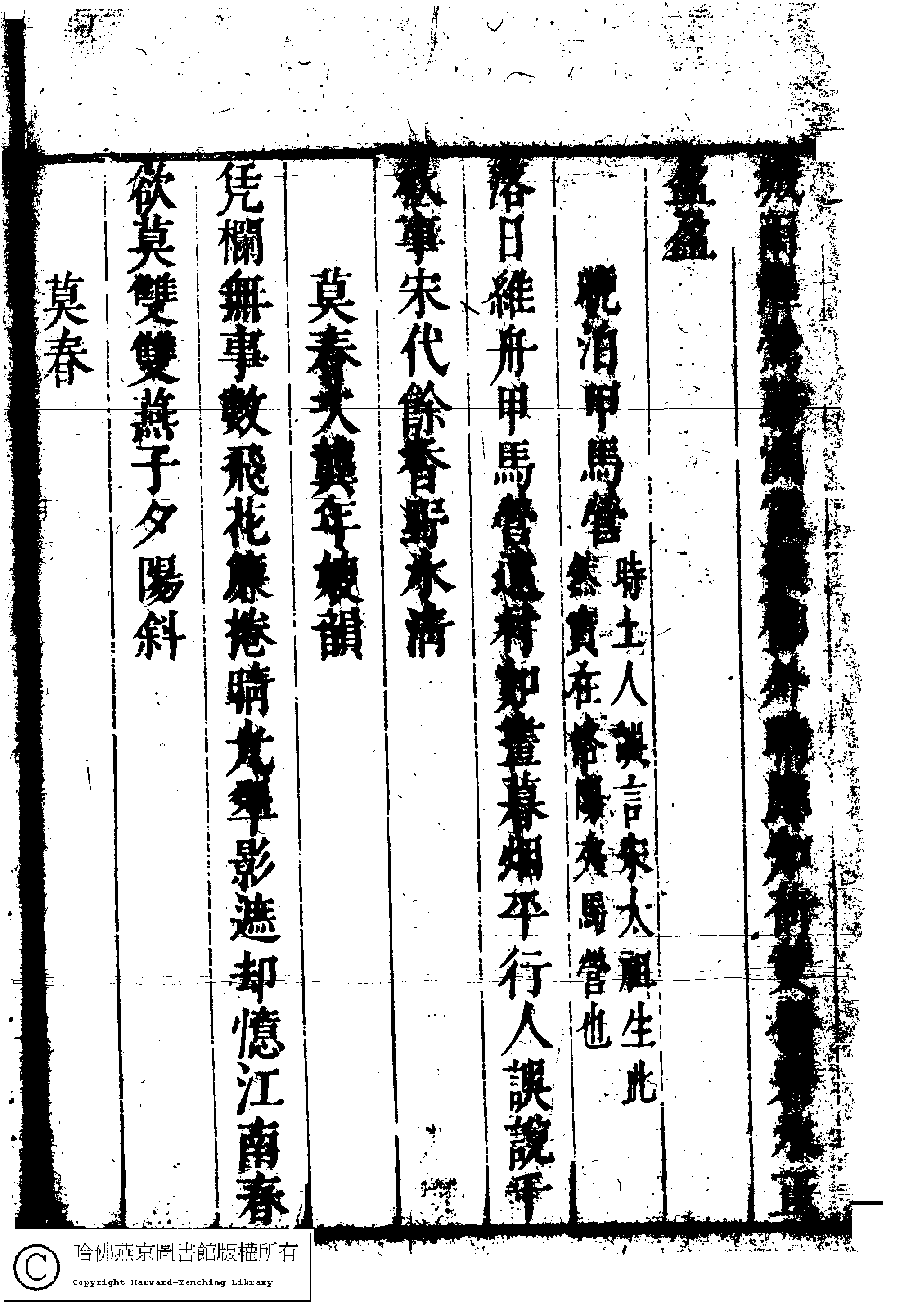 盈盈
晩泊甲馬營
時土人誤言宋太祖生此
然實在洛陽夾馬營也
落日維舟甲馬營遥村如畫暮烟平行人誤說千
秋事宋代餘香野水清
莫春次龔年嫂韻
凭欄無事數飛花簾捲晴光翠影遮却憶江南春
欲莫雙雙燕子夕陽斜
莫春
哈佛燕京圖書館版權所有
Copyright Harvard-Yenching Library